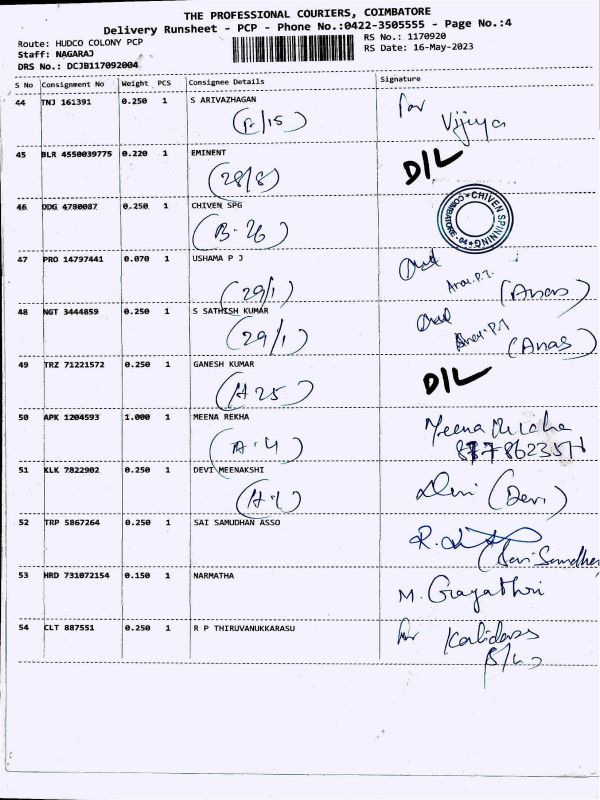 THE PROFESSIONAL COURIERS, COIMBATORE
Delivery Runsheet - PCP - Phone No.:0422-3505555 - Page No.:4
Route: HUDCO COLONY PCP
Staff: NAGARAJ
DRS No.: DCJB117092004
RS No.: 1170920
RS Date: 16-May-2023
S No Consignment No Weight PCS Consignee Details Signature
44 TNJ 161391 0.250 1 S ARIVAZHAGAN for
Vijiya
45 BLR 4550039775 0.220 1 EMINENT D/L
(28/8)
46 DDG 4780087 0.250 1 CHIVEN SPG
(B-26)
CHIVEN SPINNING COIMBATORE - 04
47 PRO 14797441 0.070 1 USHAMA P J
(29/1) (Anas)
48 NGT 3444859 0.250 1 S SATHISH KUMAR
(29/1) (Anas)
49 TRZ 71221572 0.250 1 GANESH KUMAR D/L
(H 25)
50 APK 1204593 1.000 1 MEENA REKHA
(A-4)
51 KLK 7822902 0.250 1 DEVI MEENAKSHI
(Devi)
52 TRP 5867264 0.250 1 SAI SAMUDHAN ASSO
53 HRD 731072154 0.150 1 NARMATHA
M. Gayathri
54 CLT 887551 0.250 1 R P THIRUVANUKKARASU for Kalidass